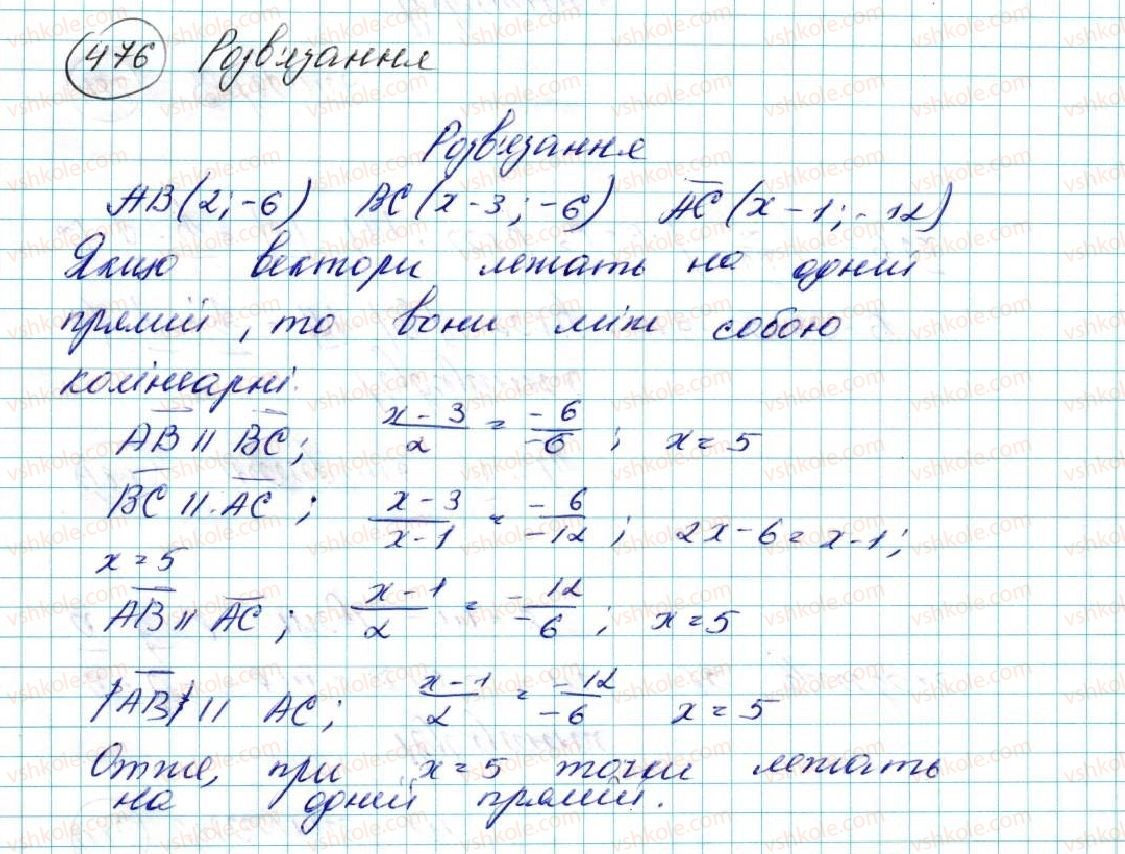 476 Розв'язання
Розв'язання
AB(2;-6) BC(x-3;-6) A͞C͞(x-1;-12)
Якщо вектори лежать на одній
прямій, то вони між собою
колінеарні.
A͞B͞ || B͞C͞; (x-3)/2 = -6/-6; x=5
B͞C͞ || A͞C͞; (x-3)/(x-1) = -6/-12; 2x-6=x-1;
x=5
A͞B͞ || A͞C͞; (x-1)/2 = -12/-6; x=5
|A͞B͞| || AC; (x-1)/2 = -12/-6 x=5
Отже, при x=5 точки лежать
на одній прямій.